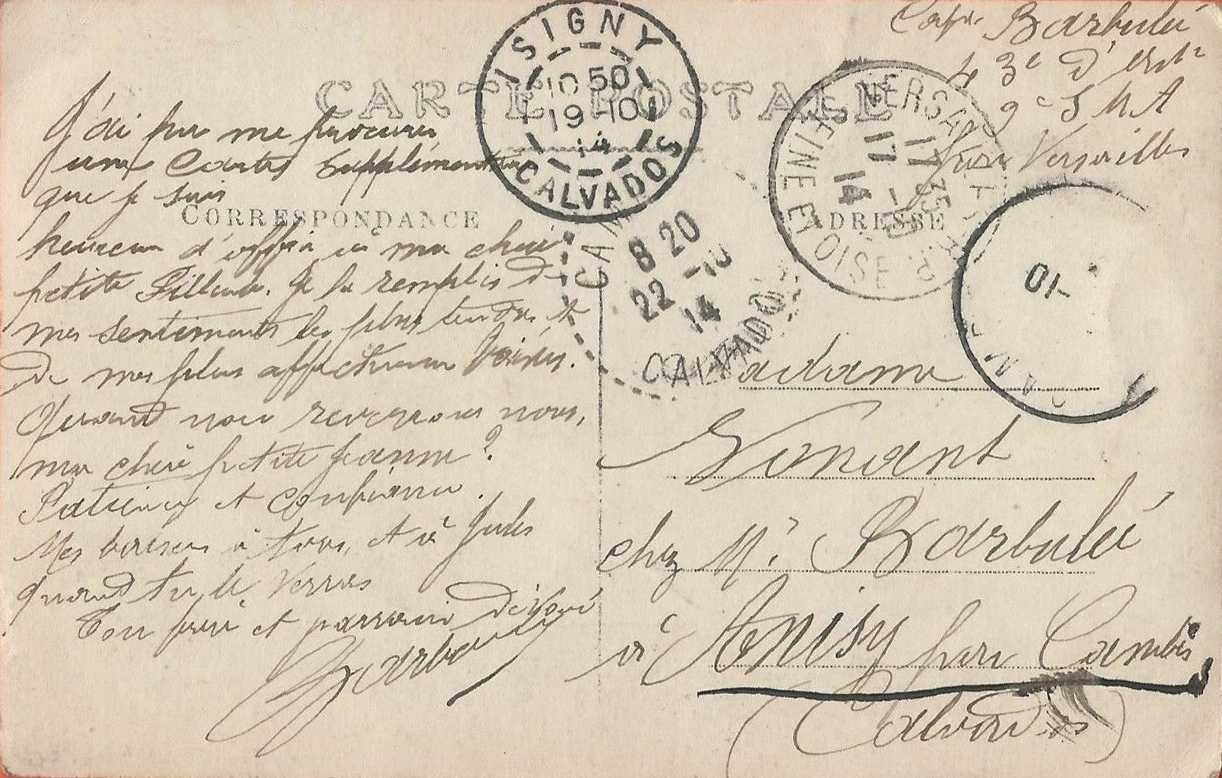 CARTE POSTALE
CORRESPONDANCE
J'ai pu me procurer
une Carte supplémentaire
que je suis
heureux d'offrir à ma chère
petite filleule. Je la remplis de
mes sentiments les plus tendres et
de mes plus affectueux baisers.
Quand nous reverrons nous,
ma chère petite Jeanne?
Patience et confiance.
Mes baisers à tous, et à Jules
quand tu le verras
Ton père et parrain dévoué
Barbulée
ISIGNY
10 50
19-10
14
CALVADOS
8 20
22-10
14
CALVADOS
VERSAILLES
17 35
17-10
14
SEINE ET OISE
-10
CAN
Barbulée
43e d'
9e S M A
Versailles
ADRESSE
Madame
Nonant
chez Mr Barbulée
à Anisy par Cambes
(Calvados)